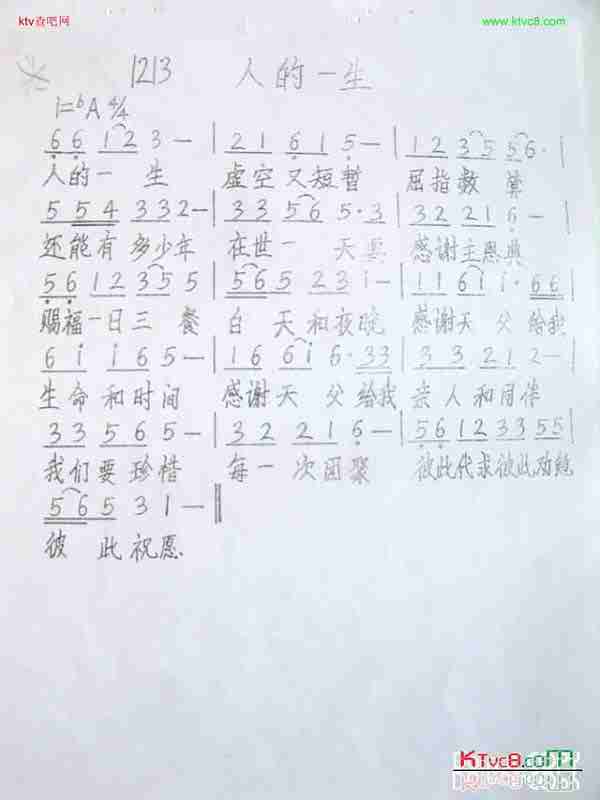 ktv查吧网
www.ktvc8.com
1213 人的一生
1=bA 4/4
6 6 1 2 3 — | 2 1 6 1 5 — | 1 2 3 5 5 6· |
人的一 生 虚空又短暂 屈指数 算
5 5 4 3 3 2 — | 3 3 5 6 5· 3 | 3 2 2 1 6 — |
还能有多少年 在世一 天要 感谢主恩典
5 6 1 2 3 5 5 | 5 6 5 2 3 1 — | 1 1 6 1 1· 6 6 |
赐福一日三 餐 白 天和夜晚 感谢天 父给我
6 1 1 6 5 — | 1 6 6 1 6· 3 3 | 3 3 2 1 2 — |
生命和时间 感谢天 父给我 亲人和同伴
3 3 5 6 5 — | 3 2 2 1 6 — | 5 6 1 2 3 3 5 5 |
我们要珍惜 每一次团聚 彼此代求彼此劝勉
5 6 5 3 1 —
彼 此祝愿
KTvc8.com